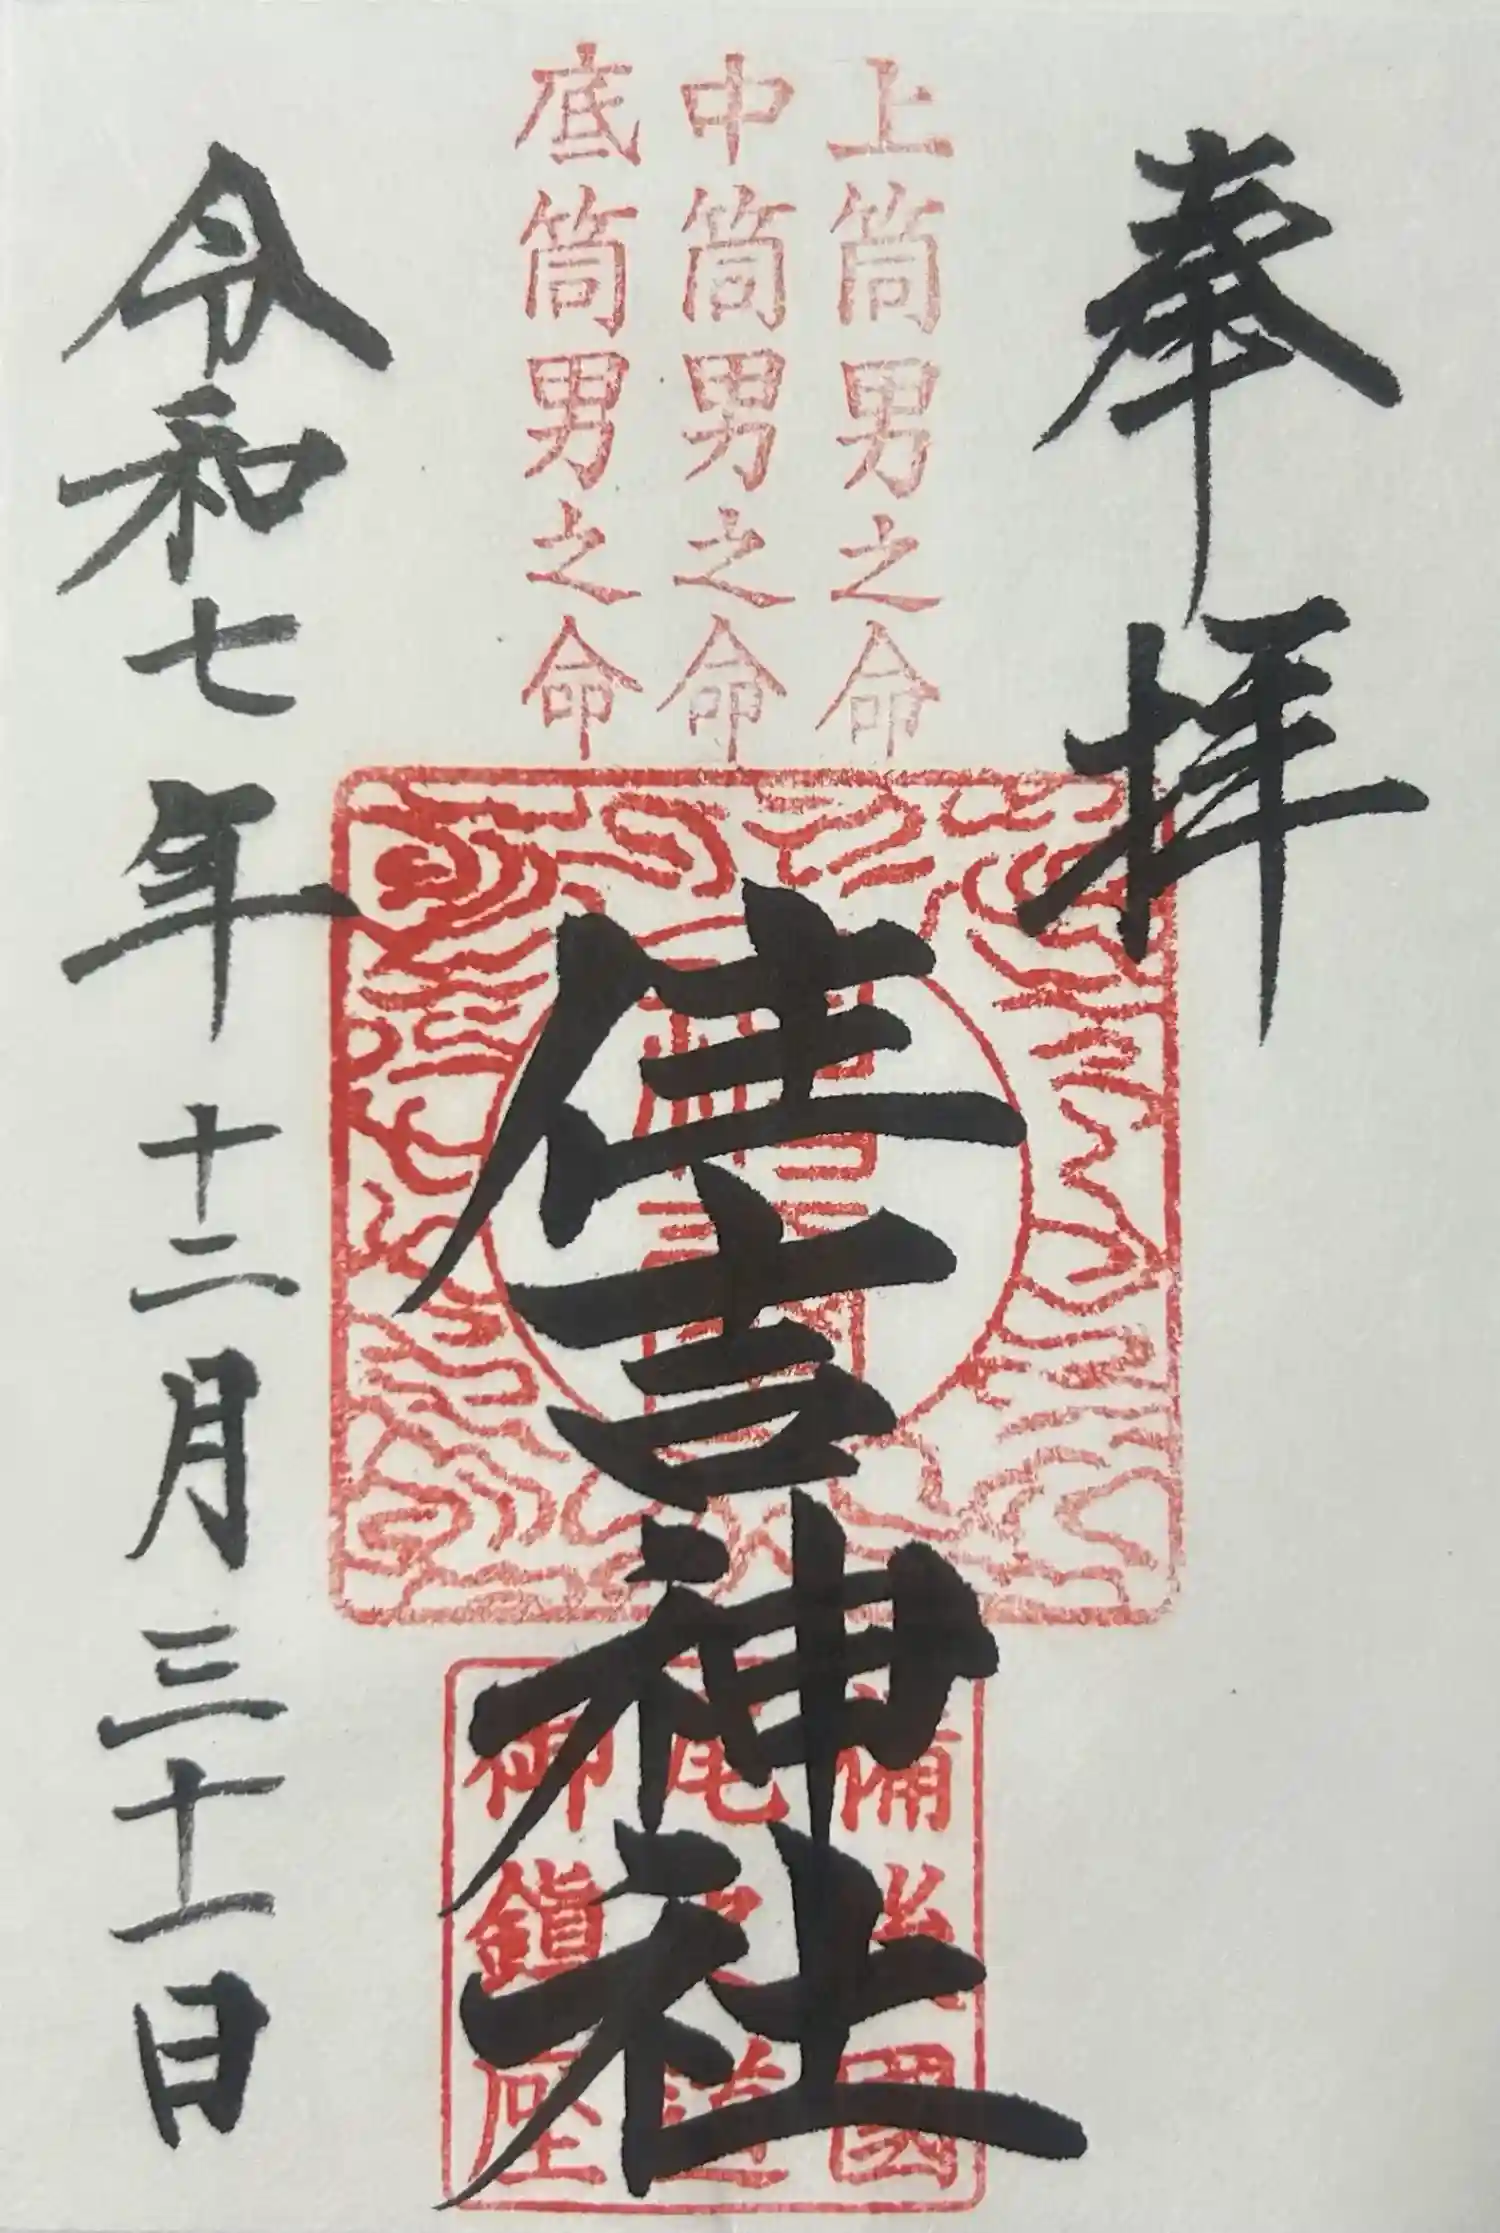 奉拝
上筒男之命
中筒男之命
底筒男之命
住吉神社
備後國
尾 道
御鎮座
令和七年十二月三十一日